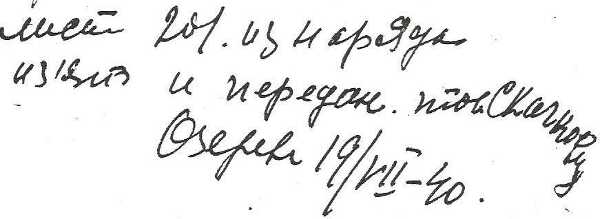 лист 201. из наряда
из'ят и передан. тов Скачкову
Озерев 19/VII-40.